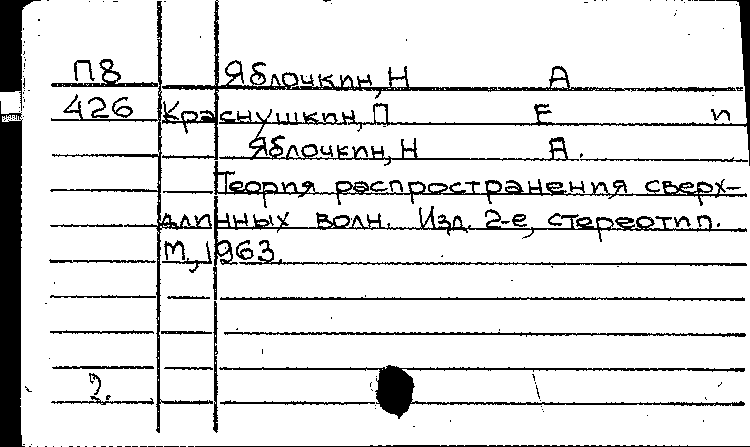 П8 Яблочкин, Н А
426 Краснушкин, П Е и
Яблочкин, Н А.
Теория распространения сверх-
длинных волн. Изд. 2-е, стереотип.
М., 1963.
2.